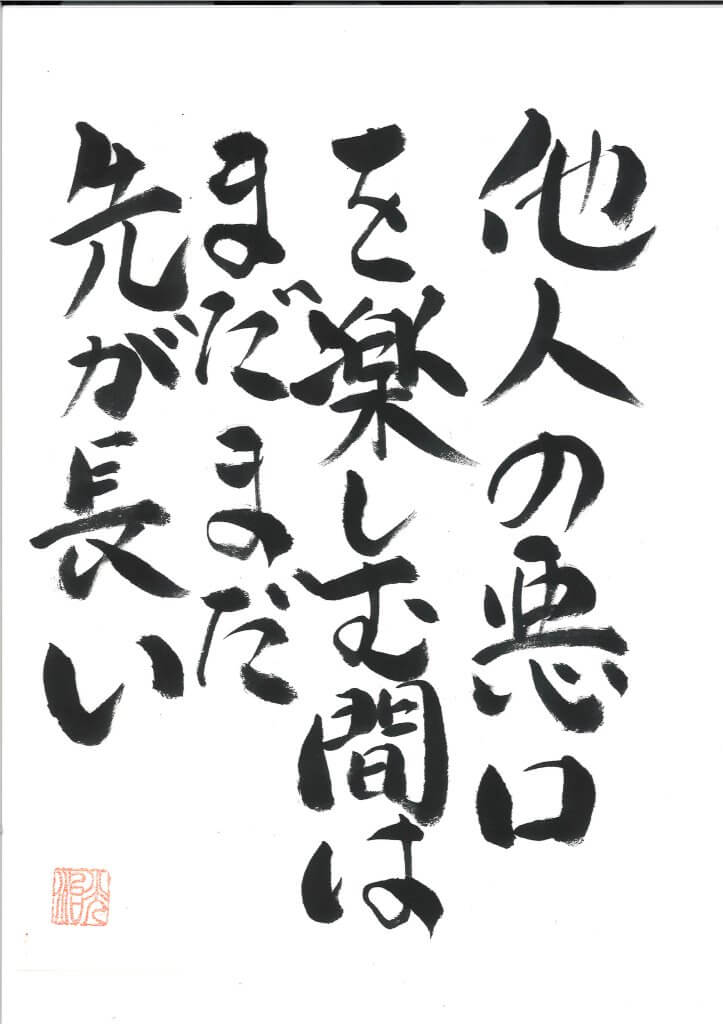 他人の悪口
を楽しむ間は
まだまだ
先が長い